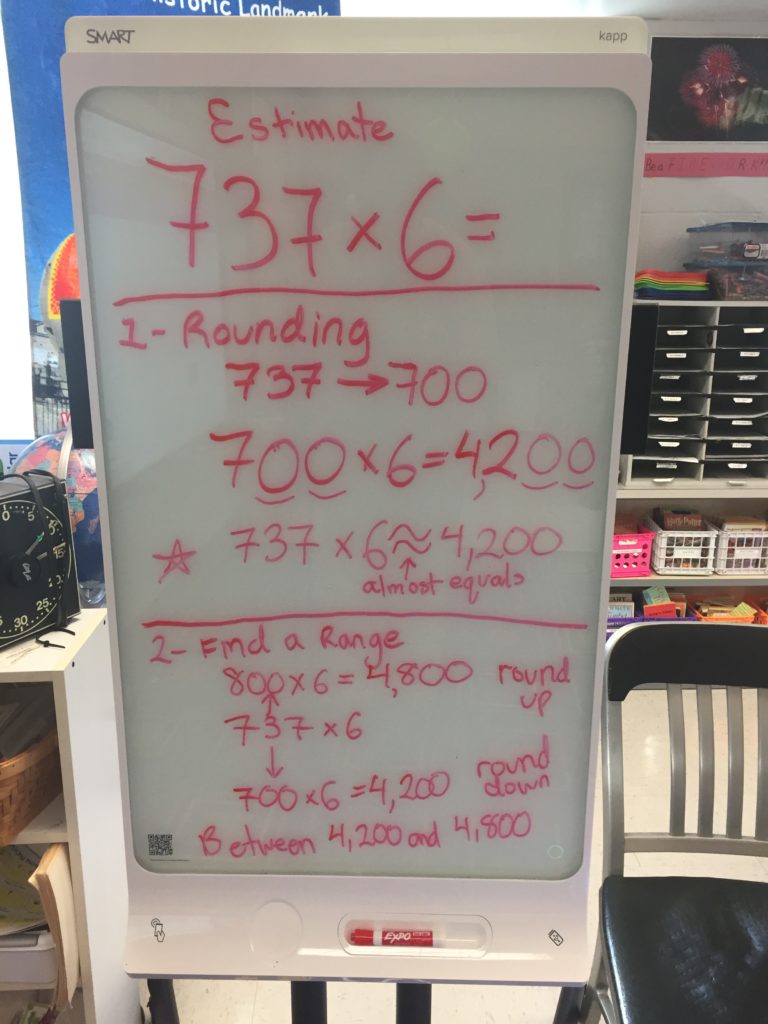 SMART kapp
Historic Landmark
Estimate
737 × 6 =
1- Rounding
737 → 700
700 × 6 = 4,200
☆ 737 × 6 ≈ 4,200
↑
almost equals
2- Find a Range
800 × 6 = 4,800 round up
↑
737 × 6
↓
700 × 6 = 4,200 round down
Between 4,200 and 4,800
EXPO